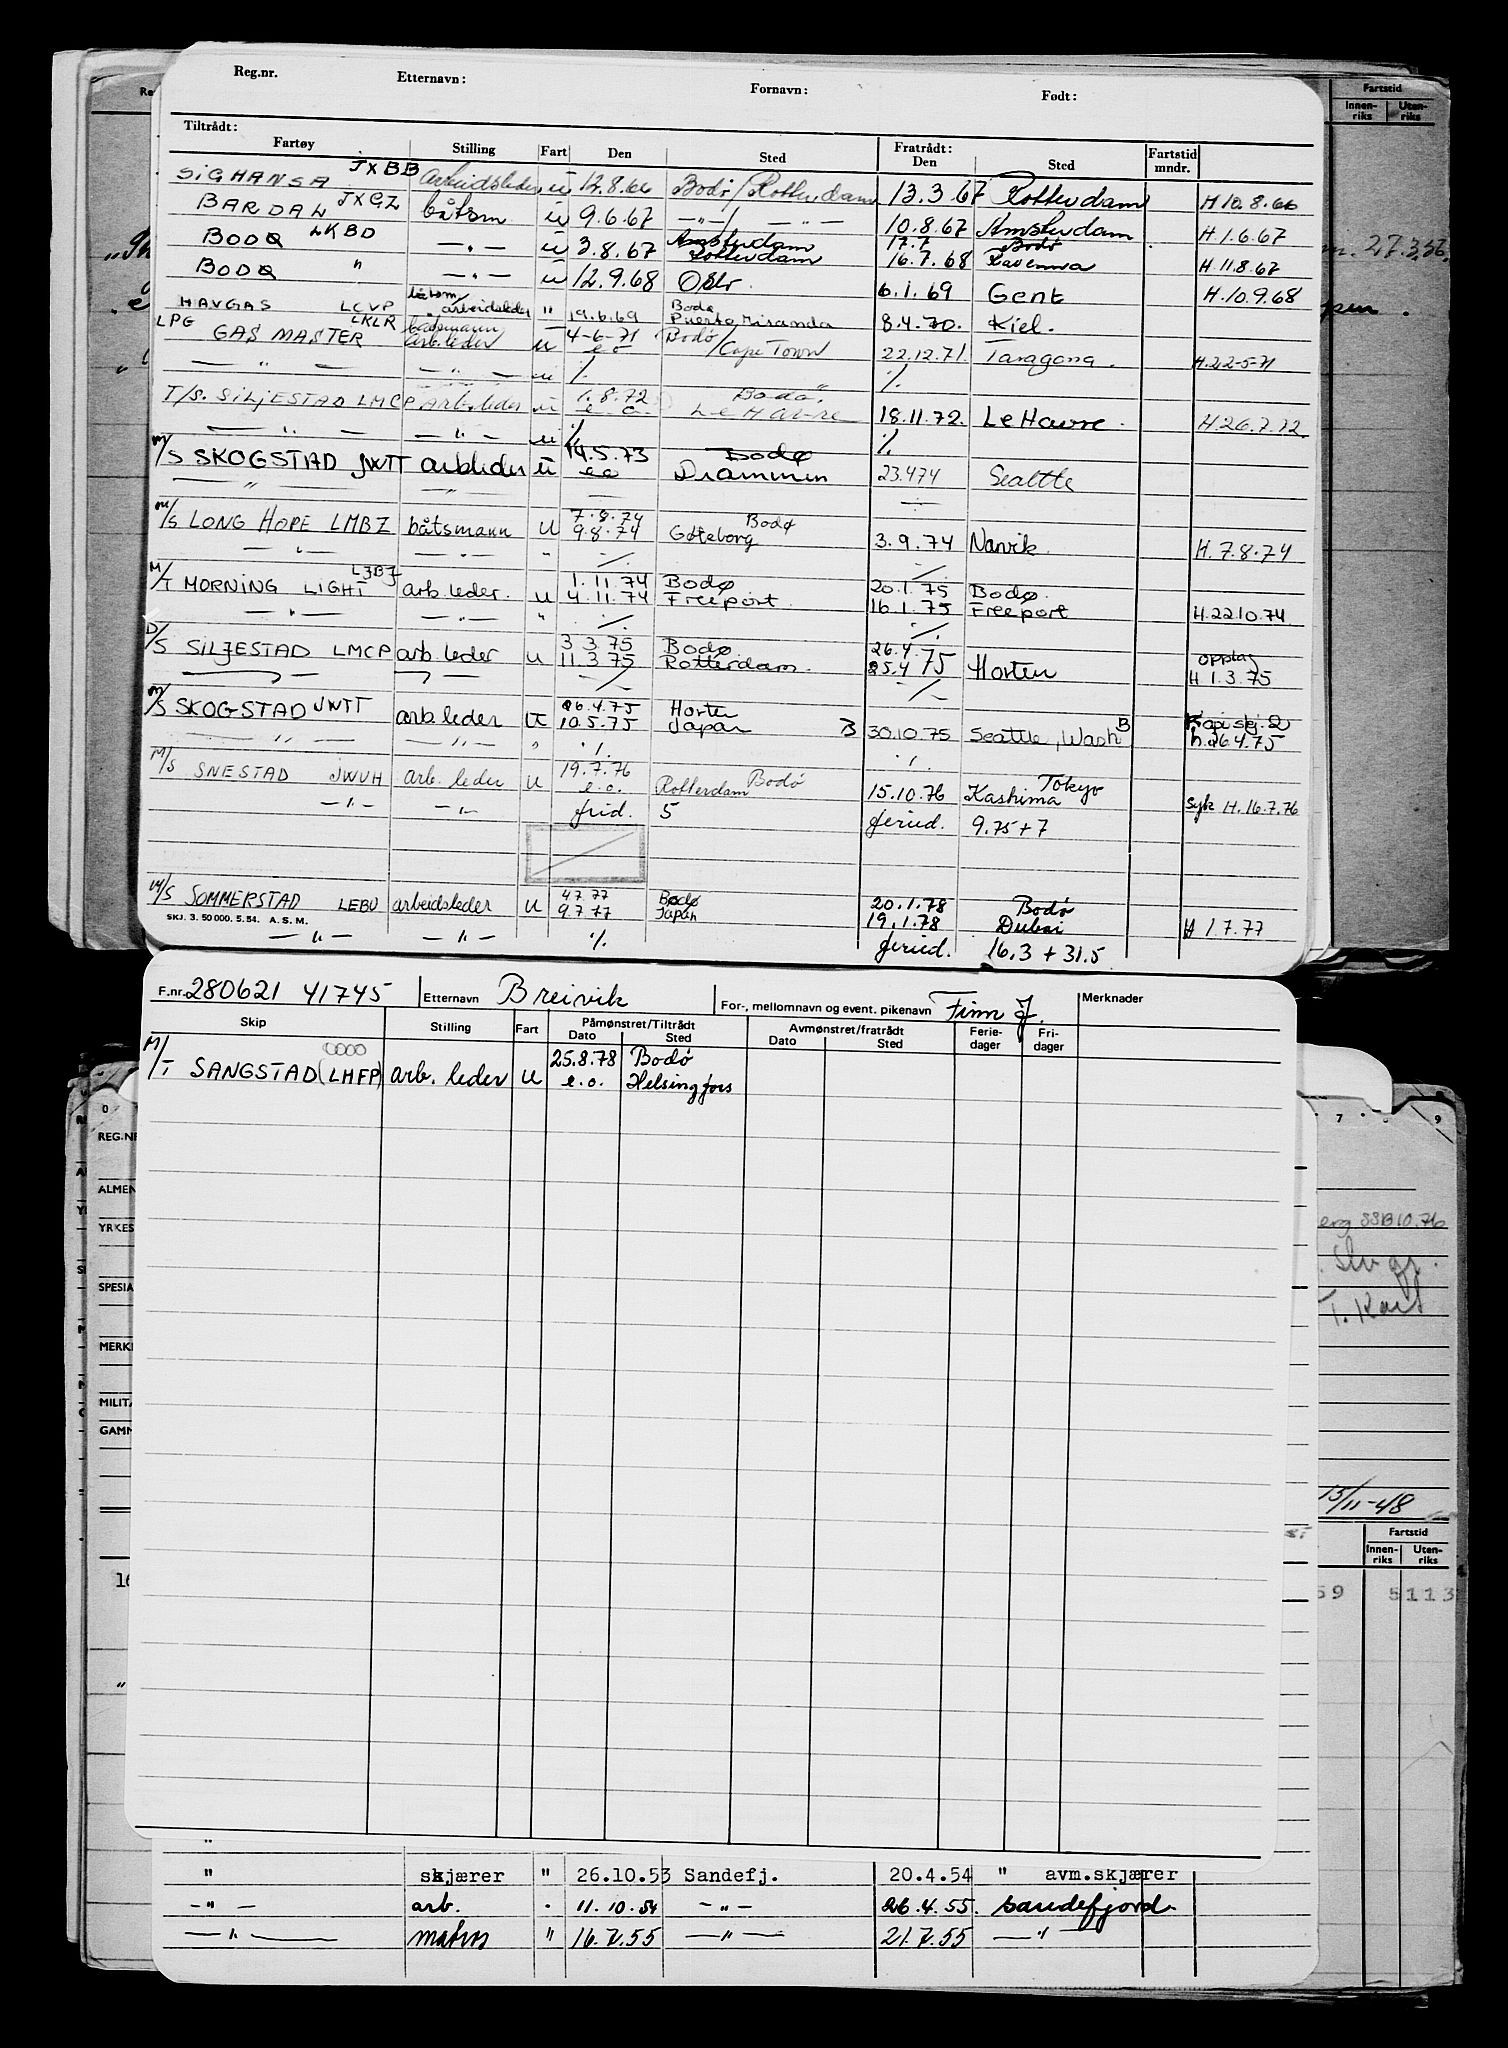 Reg.nr. Etternavn: Fornavn: Født:
Tiltrådt: Fratrådt:
Fartøy Stilling Fart Den Sted Den Sted Fartstid mndr.
SIGHANSA JXBB Arbeidsleder ū 12.8.66 Bodø/Rotterdam 13.3.67 Rotterdam H 10.8.66
BARDAL JXGZ båtsm ū 9.6.67 —"—/ —"— 10.8.67 Amsterdam H 1.6.67
BODØ LKBD —"— ū 3.8.67 Amsterdam Rotterdam 17.7 16.7.68 Bodø Ravenna H.11.8.67
BODØ " —"— ū 12.9.68 Oslo 6.1.69 Gent H.10.9.68
HAVGAS LCVP båtsm/arbeidsleder " 19.6.69 Bodø Puerto Miranda 8.4.70. Kiel.
LPG GAS MASTER LKLR båtsmann arb.leder u 4-6-71 e o Bodø/Cape Town 22.12.71. Taragona. H.22-5-71
— " — — " — ū ./. " ./.
T/S. SILJESTAD LMCP Arb.leder ū 1.8.72 e o Bodø. Le Havre 18.11.72. Le Havre. H 26.7.72.
— " — — " — ū ./. ./.
M/S SKOGSTAD JWTT arbleder ū 14.5.73 eo Bodø Drammen 23.4.74 Seattle
— " — — " — — —
M/S LONG HOPE LMBZ båtsmann U 7.8.74 9.8.74 Bodø Gøteborg 3.9.74 Narvik. H.7.8.74
— " — — " — " ./. ./.
M/T MORNING LIGHT LJBJ arb.leder. U 1.11.74 4.11.74 Bodø Freeport. 20.1.75 16.1.75 Bodø. Freeport H.22.10.74
— " — — " — " ./. ./.
D/S SILJESTAD LMCP arb.leder U 3 3 75 11.3 75 Bodø. Rotterdam. 26.4. 25.4 75 Horten opplag H 1.3.75
M/S SKOGSTAD JWTT arb.leder U 26.4.75 10.5.75 Horten Japan B 30.10.75 Seattle, Wash B h.26.4.75
— " — — " — " ./. ./.
M/S SNESTAD JWUH arb. leder U 19.7.76 e.o. Rotterdam Bodø 15.10.76 Kashima Tokyo Syk H.16.7.76
— " — — " — frid. 5 feried. 9.75 + 7
M/S SOMMERSTAD LEBU arbeidsleder U 4.7 77 9.7 77 Bodø Japan 20.1.78 19.1.78 Bodø Dubai H 1.7.77
SKJ. 3. 50 000. 5. 54. A. S. M.
— " — — " — ./. feried. 16.3 + 31.5
F.nr. 280621 41745 Etternavn Breivik For-, mellomnavn og event. pikenavn Finn J. Merknader
Skip Stilling Fart Påmønstret/Tiltrådt Avmønstret/fratrådt Ferie-dager Fri-dager
Dato Sted Dato Sted
M/T SANGSTAD (LHFP) arb. leder U 25.8.78 e.o. Bodø Helsingfors
" skjærer " 26.10.53 Sandefj. 20.4.54 " avm.skjærer
—"— arb. . 11.10.54 —"— 26.4.55. Sandefjord.
—"— matros " 16.7.55 —"— 21.7.55 —"—
Fartstid
Innen-riks Uten-riks
27.3.56.
REG.NR
ALMEN
YRKES
SPESIA
MERKI
MILITÆ
GAMM
7 9
berg SSB 10.76
T. Kart
15/11-48
Fartstid
Innen-riks Uten-riks
59 5113
16